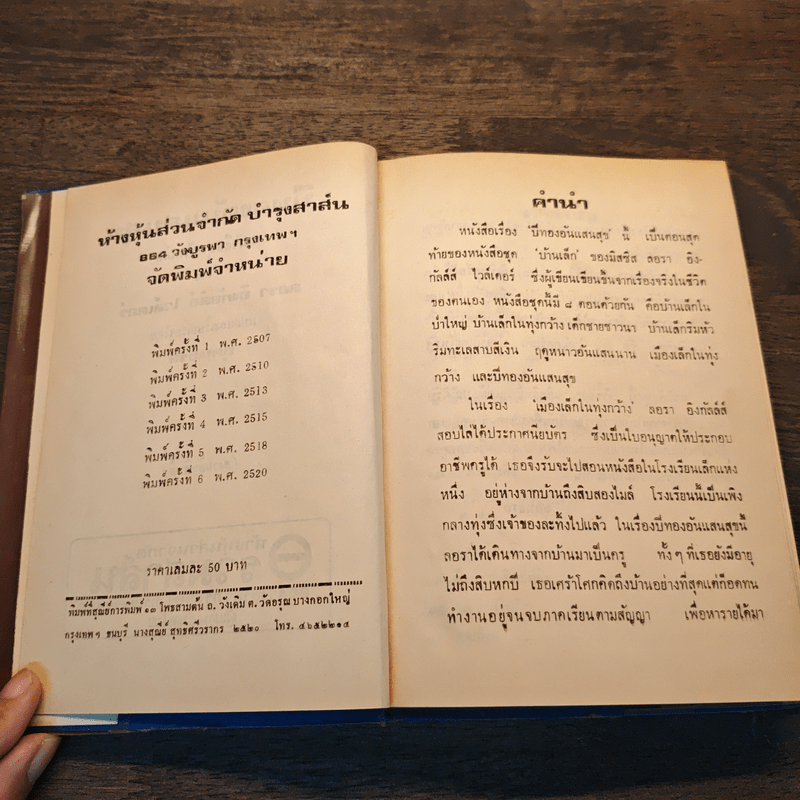 ห้างหุ้นส่วนจำกัด บำรุงสาส์น
864 วังบูรพา กรุงเทพฯ
จัดพิมพ์จำหน่าย
พิมพ์ครั้งที่ 1 พ.ศ. 2507
พิมพ์ครั้งที่ 2 พ.ศ. 2510
พิมพ์ครั้งที่ 3 พ.ศ. 2513
พิมพ์ครั้งที่ 4 พ.ศ. 2515
พิมพ์ครั้งที่ 5 พ.ศ. 2518
พิมพ์ครั้งที่ 6 พ.ศ. 2520
ราคาเล่มละ 50 บาท
พิมพ์ที่สุณีย์การพิมพ์ ๑๓ โพธสามต้น ถ. วังเดิม ต. วัดอรุณ บางกอกใหญ่
กรุงเทพฯ ธนบุรี นางสุณีย์ สุทธิศรีวรากร ๒๕๒๐ โทร. ๔๖๕๒๒๑๔
คำนำ
หนังสือเรื่อง 'ปีทองอันแสนสุข' นี้ เป็นตอนสุด
ท้ายของหนังสือชุด 'บ้านเล็ก' ของมิสซิส ลอรา อิง-
กัลล์ส์ ไวล์เดอร์ ซึ่งผู้เขียนเขียนขึ้นจากเรื่องจริงในชีวิต
ของตนเอง หนังสือชุดนี้มี ๘ ตอนด้วยกัน คือบ้านเล็กใน
ป่าใหญ่ บ้านเล็กในทุ่งกว้าง เด็กชายชาวนา บ้านเล็กริมห้ว
ริมทะเลสาบสีเงิน ฤดูหนาวอันแสนนาน เมืองเล็กในทุ่ง
กว้าง และปีทองอันแสนสุข
ในเรื่อง 'เมืองเล็กในทุ่งกว้าง' ลอรา อิงกัลล์ส์
สอบไล่ได้ประกาศนียบัตร ซึ่งเป็นใบอนุญาตให้ประกอบ
อาชีพครูได้ เธอจึงรับจะไปสอนหนังสือในโรงเรียนเล็กแห่ง
หนึ่ง อยู่ห่างจากบ้านถึงสิบสองไมล์ โรงเรียนนี้เป็นเพิง
กลางทุ่งซึ่งเจ้าของละทิ้งไปแล้ว ในเรื่องปีทองอันแสนสุขนี้
ลอราได้เดินทางจากบ้านมาเป็นครู ทั้งๆ ที่เธอยังมีอายุ
ไม่ถึงสิบหกปี เธอเศร้าโศกคิดถึงบ้านอย่างที่สุดแต่ก็อดทน
ทำงานอยู่จนจบภาคเรียนตามสัญญา เพื่อหารายได้มา